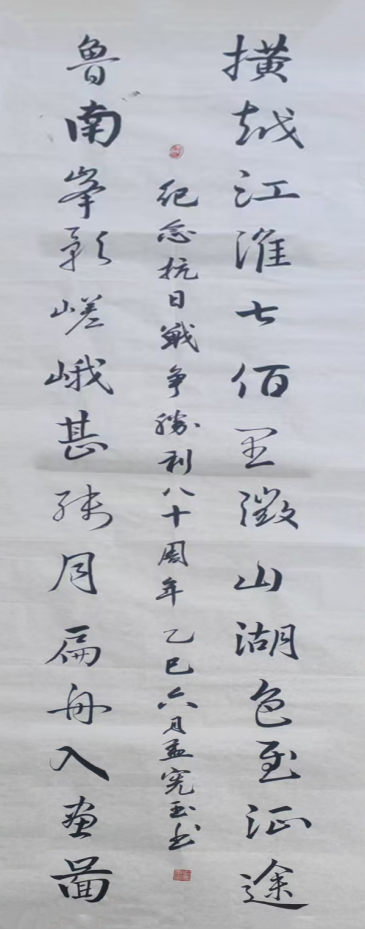 横越江淮七佰里微山湖色至征途
魯南峯影嵯峨甚残月扁舟入畫圖
纪念抗日戰争勝利八十周年 乙巳六月孟宪玉书